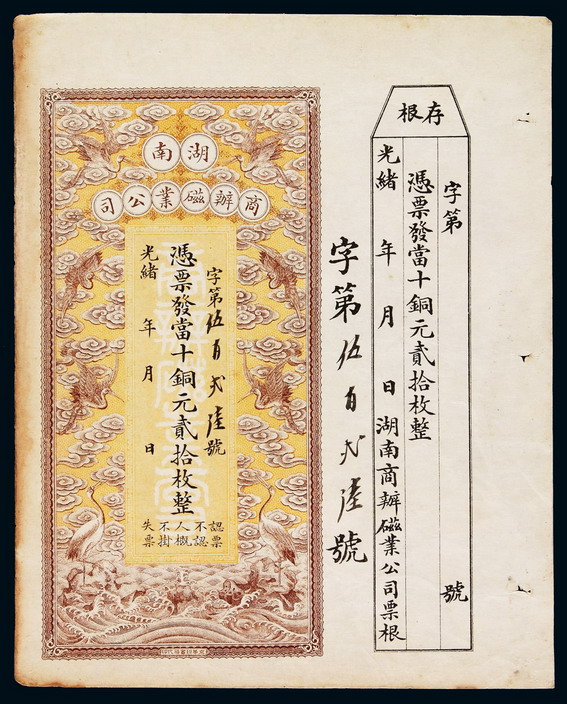 存根
字第 號
憑票發當十銅元貳拾枚整
光緒 年 月 日湖南商辦磁業公司票根
字第伍百弍陸號
湖南
商辦磁業公司
字第伍百弍陸號
憑票發當十銅元貳拾枚整
光緒 年 月 日
認票
不認
人概
不掛
失票